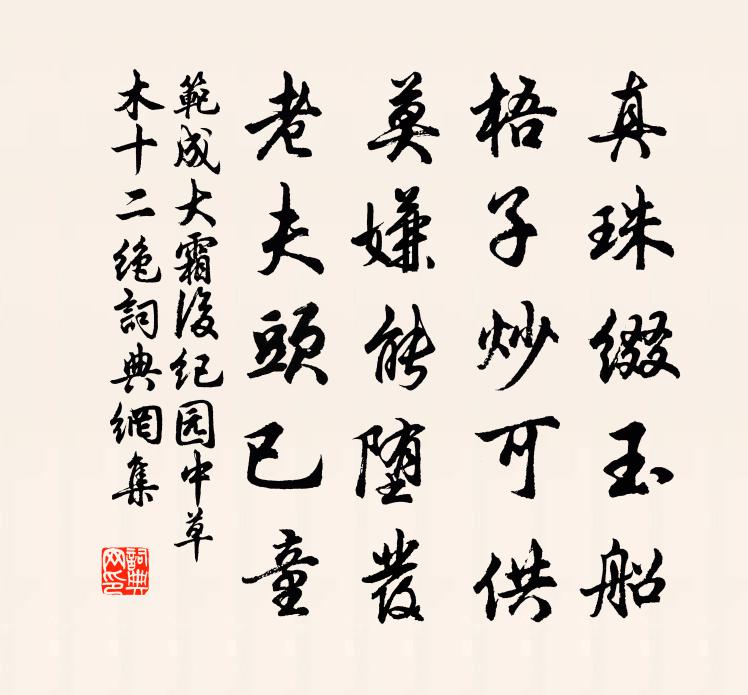 真珠缀玉船
梧子炒可供
莫嫌能堕发
老夫頭已童
範成大霜後纪园中草
木十二绝詞典網集
詞典
网印